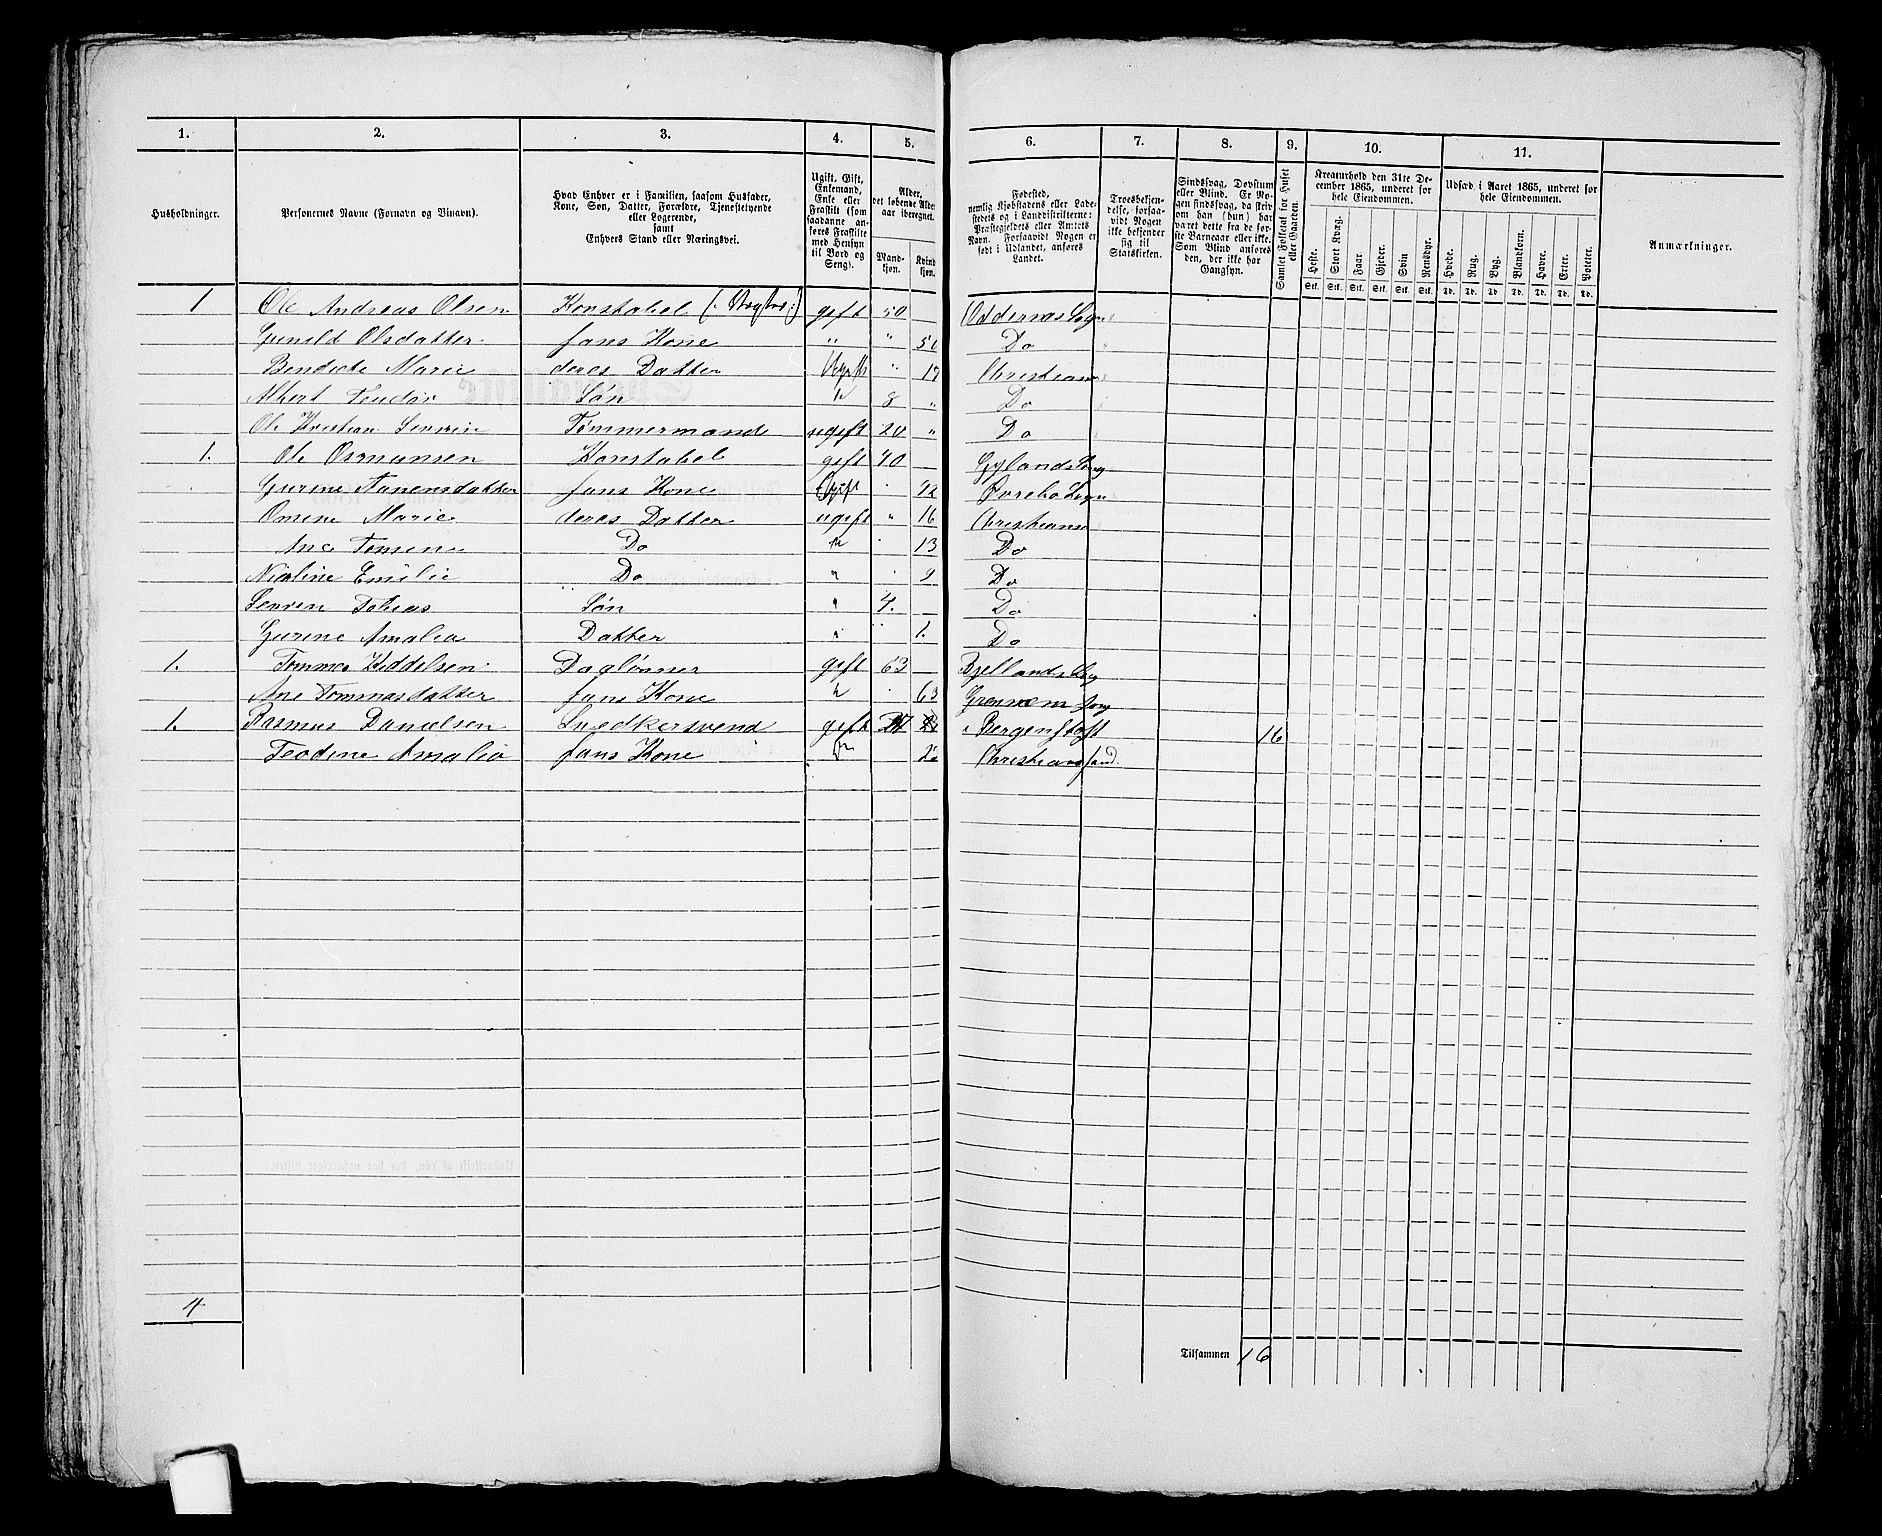 1. 2. 3. 4. 5. 6. 7. 8. 9. 10. 11.
Husholdninger.
Personernes Navne (Fornavn og Binavn).
Hvad Enhver er i Familien, saasom Husfader,
Kone, Søn, Datter, Forældre, Tjenestetyende
eller Logerende,
samt
Enhvers Stand eller Næringsvei.
Ugift, Gift,
Enkemand,
Enke eller
Fraskilt (som
saadanne an-
føres Fraskilte
med Hensyn
til Bord og
Seng).
Alder,
det løbende Alders-
aar iberegnet.
Mand-
kjøn.
Kvind
kjøn.
Fødested,
nemlig Kjøbstadens eller Lade-
stedets og i Landdistrikterne:
Præstegjeldets eller Amtets
Navn. Forsaavidt Nogen er
født i Udlandet, anføres
Landet.
Troesbekjen-
delse, forsaa-
vidt Nogen
ikke bekjender
sig til
Statskirken.
Sindssvag, Døvstum
eller Blind. Er No-
gen sindssvag, da skriv
om han (hun) har
været dette fra de før-
ste Barneaar eller ikke.
Som Blind anføres
den, der ikke har
Gangsyn.
Samlet Folketal for Huset
eller Gaarden.
Kreaturhold den 31te De-
cember 1865, underet for
hele Eiendommen.
Heste. Stort Kvæg. Faar. Gjeder. Svin Rensdyr.
Stk. Stk. Stk. Stk. Stk. Stk.
Udsæd i Aaret 1865, underet for
hele Eiendommen.
Hvede. Rug. Byg. Blandkorn. Havre. Erter. Poteter.
Td. Td. Td. Td. Td. Td. Td.
Anmærkninger.
1 Ole Andreas Olsen Konstabel gift 50 Oddernes Sogn
Gunild Olsdatter hans Kone " " Do
Bendicte Marie deres Datter Ugift " Christians
Albert Teodor Søn 8 " Do
Ole Kristian Severin Tømmermand ugift 20 " Do
1. Ole Osmunsen Konstabel gift 40 Gylands Sogn
Gurine Aanensdatter hans Kone Gift 42 Øvrebo Sogn
Omine Marie deres Datter ugift " 16 Christians
Ane Tomine Do " 13 Do
Nicoline Emilie Do " 9 Do
Sevrin Tobias Søn " 4. Do
Gurine Amalia Datter " 1. Do
1. Tommes Keddelsen Daglønner gift 63 Bjellands Sog
Ane Tommasdatter hans Kone " 63
1. Rasmus Danielsen Snedkersvend gift Bergenstift 16
Teodine Amalia hans Kone Christiansand.
4
Tilsammen 16